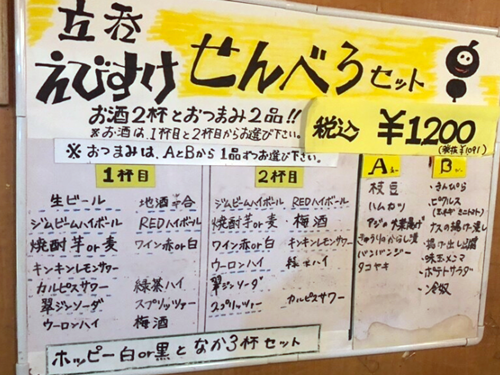 立呑
えびすけ せんべろセット
お酒2杯とおつまみ2品!!
※お酒は、1杯目と2杯目からお選び下さい。
税込 ¥1200
(税抜¥1091)
※おつまみは、AとBから1品ずつお選び下さい。
1杯目
生ビール 地酒一合
ジムビームハイボール REDハイボール
焼酎芋or麦 ワイン赤or白
キンキンレモンサワー
カルピスサワー 緑茶ハイ
翠ジンソーダ スプリッツァー
ウーロンハイ 梅酒
2杯目
ジムビームハイボール REDハイボール
焼酎芋or麦 梅酒
ワイン赤or白 キンキンレモンサワー
ウーロンハイ 緑茶ハイ
翠ジンソーダ
スプリッツァー カルピスサワー
A
枝豆
ハムカツ
アジの南蛮漬け
きゅうりのからし漬
バンバンジー
タコヤキ
B
・きんぴら
・ピクルス
・ナスの揚げ浸し
・揚げ出し豆腐
・味玉メンマ
・ポテトサラダ
・冷奴
ホッピー白or黒となか3杯セット